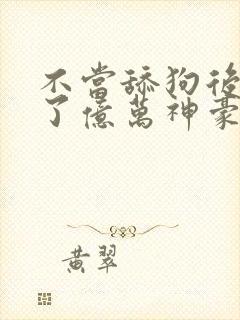 不當舔狗後
了億萬神豪
黃翠